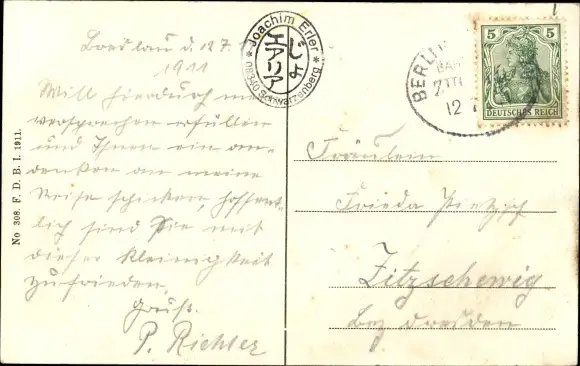 Breslau d. 12.7.
1911
Will hierdurch mein
versprechen erfüllen
und Ihnen ein an-
denken an meine
Reise schicken, hoffent-
lich sind Sie mit
dieser Kleinigkeit
zufrieden.
Gruß.
P. Richter
No 308. F. D. B. I. 1911.
* Joachim Erler *
08340 Schwarzenberg
BERLIN
BAH
ZUG
12
5 5
DEUTSCHES REICH
Fräulein
Frieda
Zitzschewig
Bez Dresden